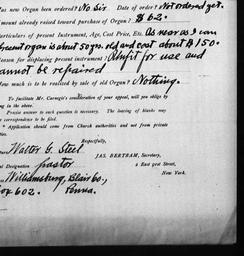 as new Organ been ordered? No Sir. Date of order? Not ordered yet.
mount already raised toward purchase of Organ? $6-2.
articulars of present Instrument, Age, Cost Price, Etc. As near as I can
present organ is about 50 yrs. old and cost about $150.
eason for displacing present instrument: Unfit for use and
cannot be repaired
ow much is to be realised by sale of old Organ? Nothing.
To facilitate Mr. Carnegie's consideration of your appeal, will you oblig
by
to the
Insert answer to each question is necessary. The leaving of blanks may
correspondence to be filed.
* Application should come from Church authorities and not from private
ties.
Respectfully,
JAS. BERTRAM, Secretary,
2 East 91st Street,
New York.
Walter G. Steel
ial Designation pastor
Williamsburg, Blair Co.,
ox 602. Penna.